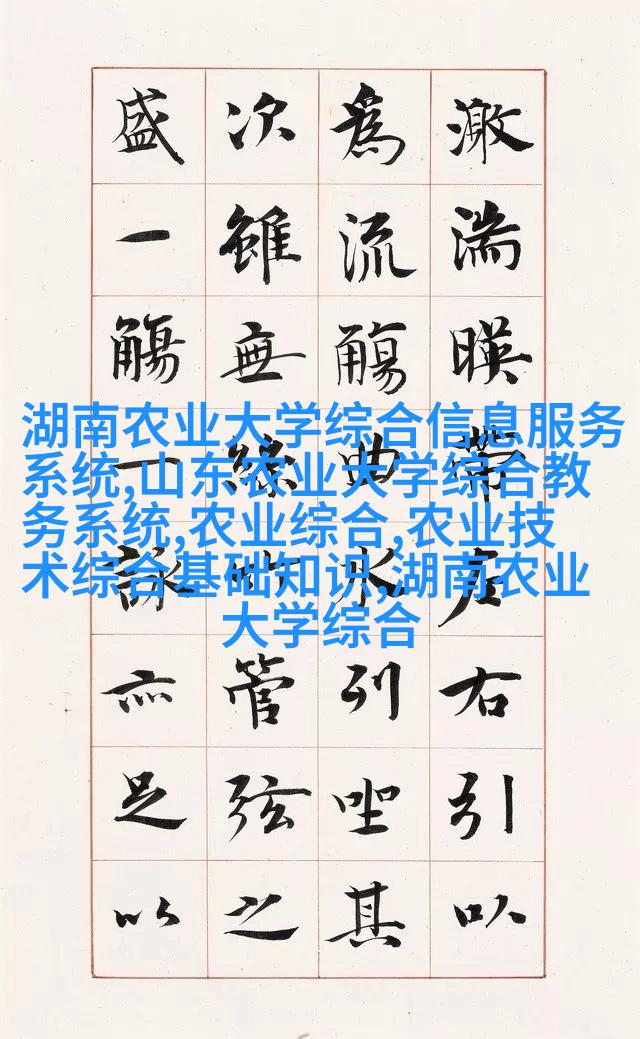 激湍暎帶左右引以
為流觴曲水列坐其
次雖無絲竹管弦之
盛一觴一詠亦足以
湖南农业大学综合信息服务
系统,山东农业大学综合教
务系统,农业综合,农业技
术综合基础知识,湖南农业
大学综合